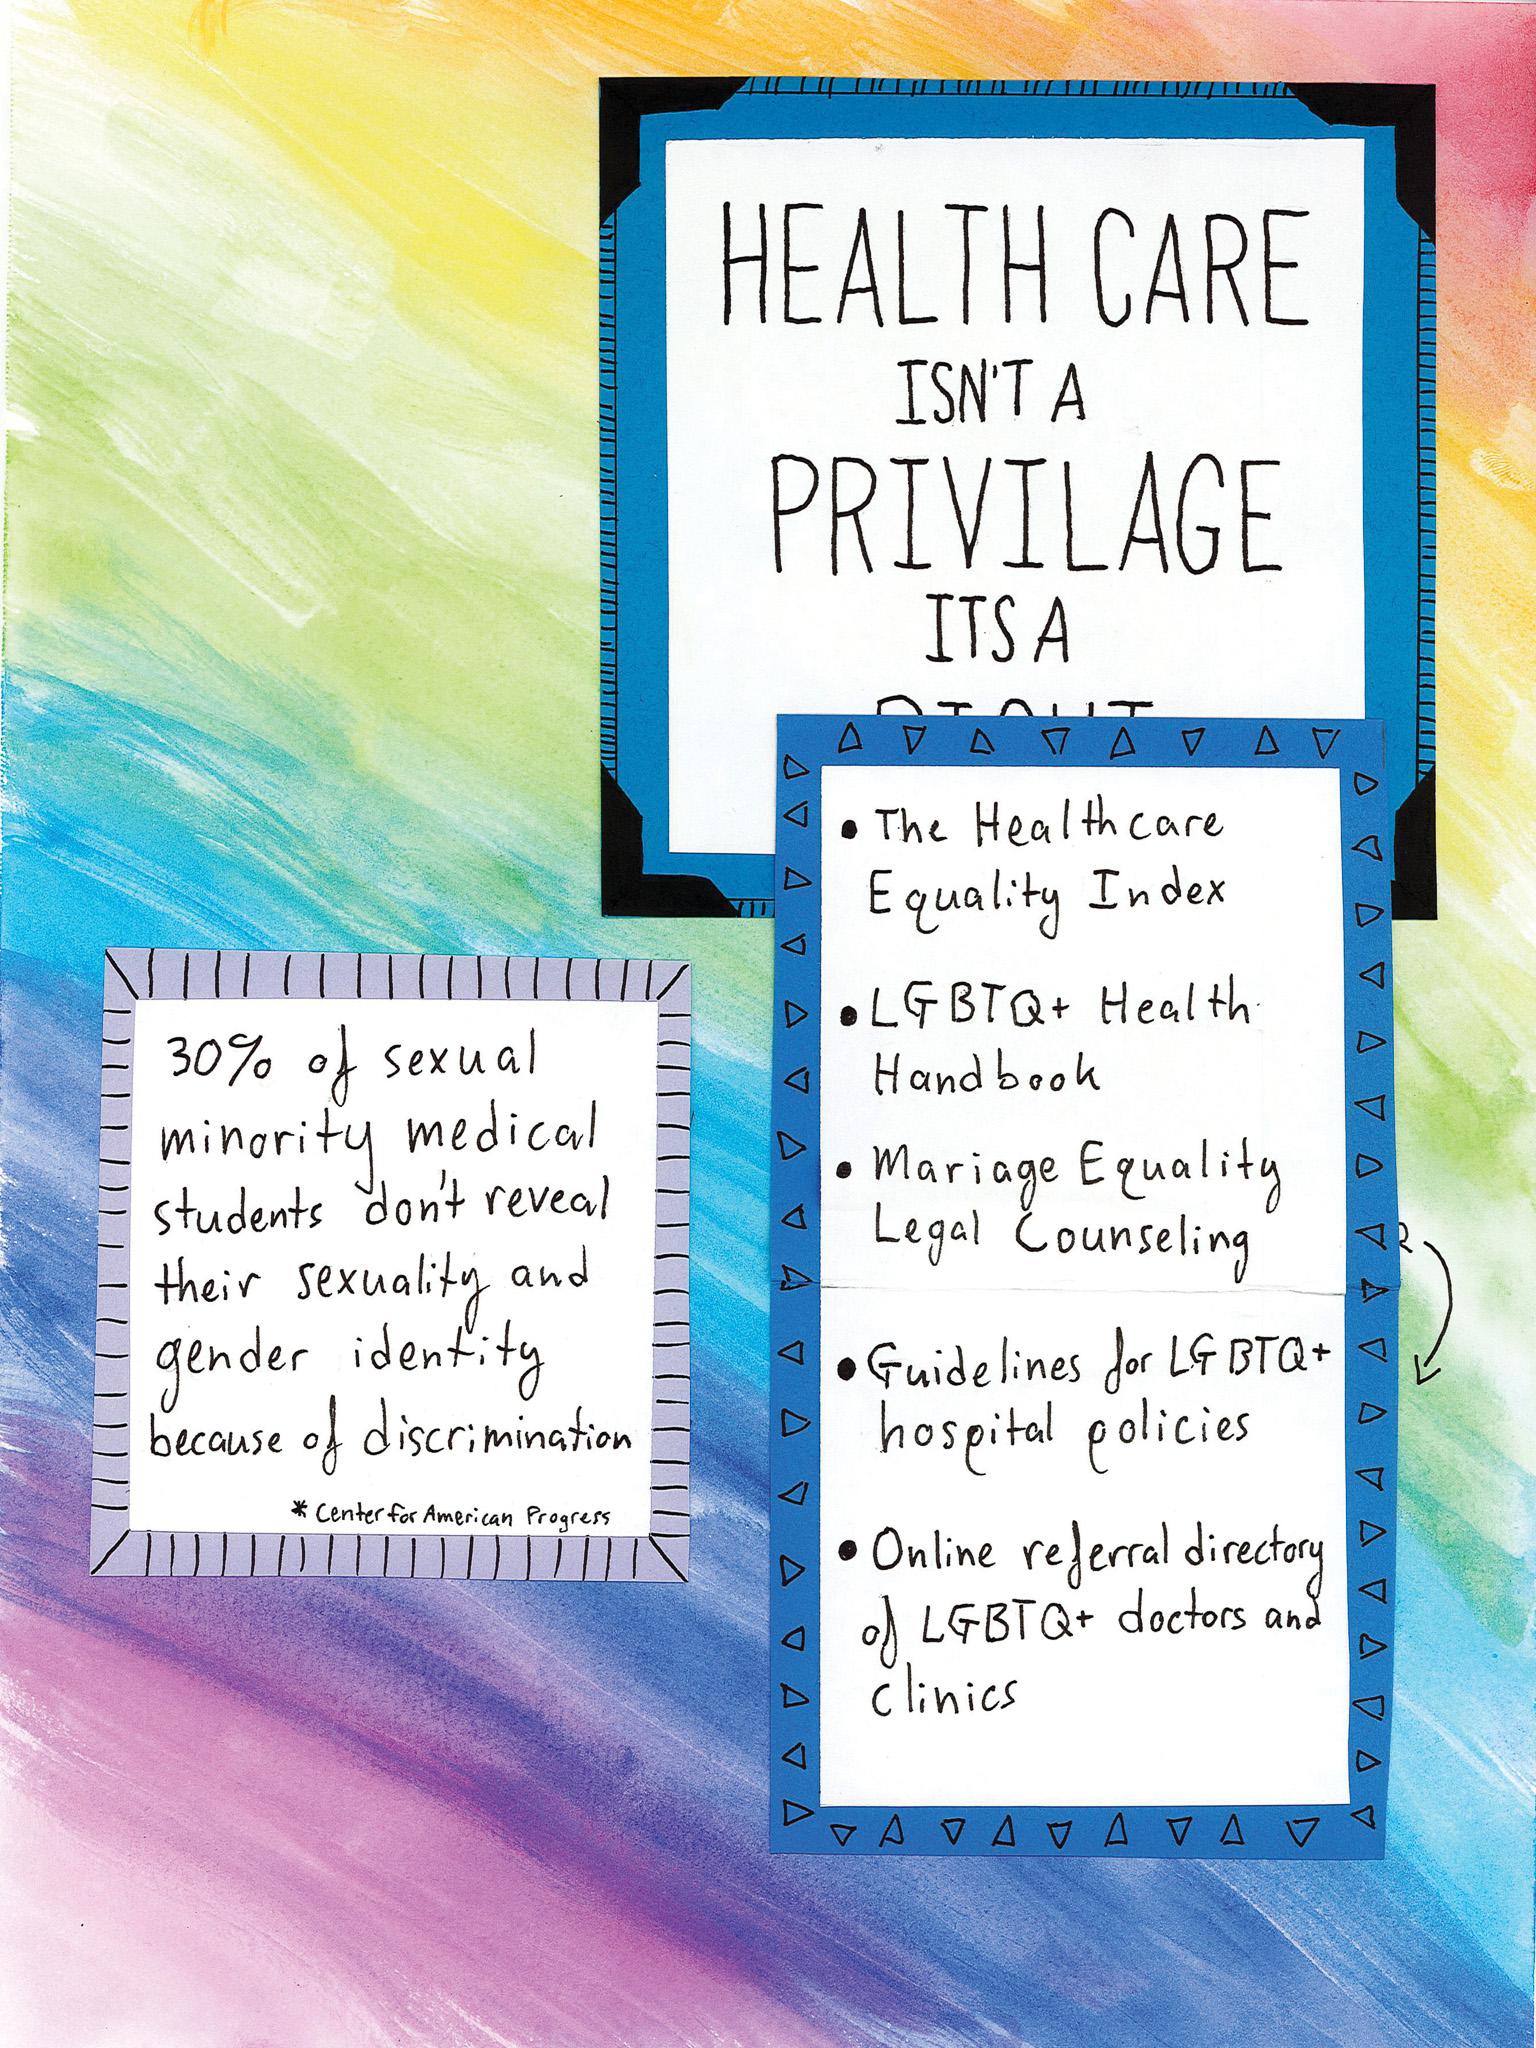 HEALTH CARE
ISN'T A
PRIVILAGE
ITS A
RIGHT
30% of sexual
minority medical
students don't reveal
their sexuality and
gender identity
because of discrimination
* Center for American Progress
• The Healthcare
Equality Index
• LGBTQ+ Health
Handbook
• Mariage Equality
Legal Counseling
• Guidelines for LGBTQ+
hospital policies
• Online referral directory
of LGBTQ+ doctors and
clinics